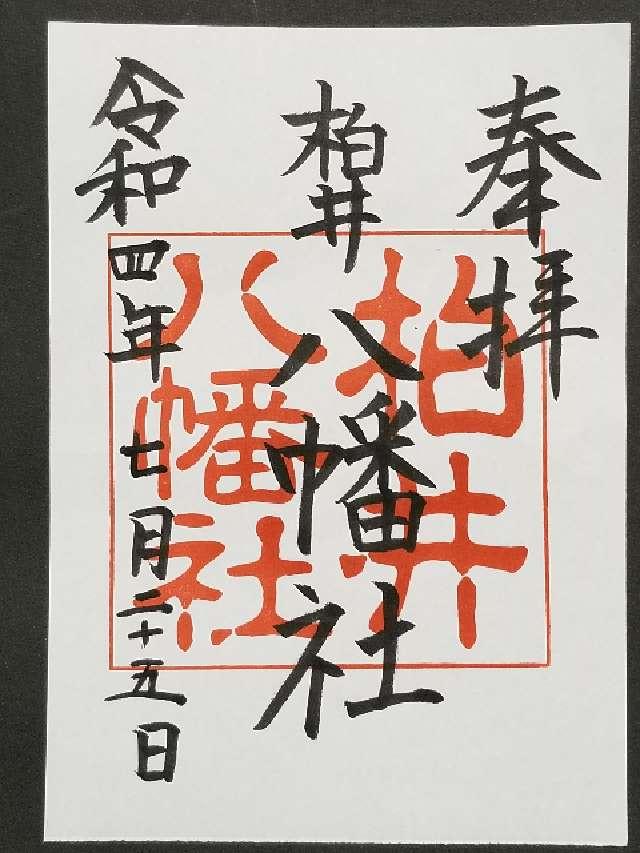 奉拝
柏井
八幡社
令和四年七月二十五日
柏井
八幡社